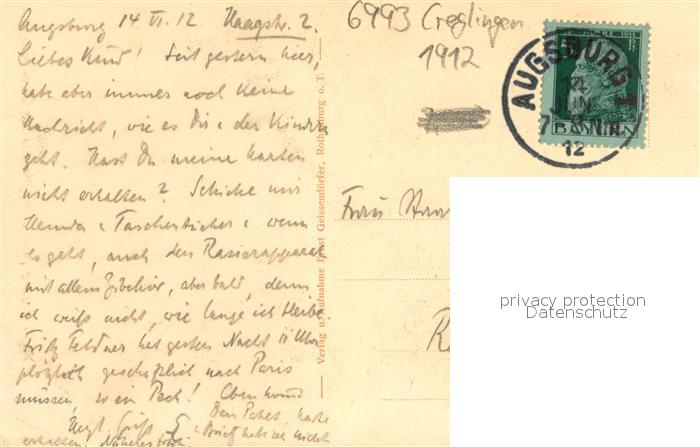 Augsburg 14 VI. 12 Haagstr. 2.
Liebes Kind! Seit gestern hier,
habe aber immer noch keine
Nachricht, wie es Dir u. den Kindern
geht. Hast Du meine Karten
nicht erhalten? Schicke mir
Hemden u. Taschentücher u. wenn
es geht, auch den Rasierapparat
mit allem Zubehör, aber bald, denn
ich weiß nicht, wie lange ich bleibe.
Fritz Feldner hat gestern Nacht 11 Uhr
plötzlich geschäftlich nach Paris
müssen, so ein Pech! Eben kommt
Karte
erhalten. Brief habe ich nicht
Verlag u. Aufnahme Ernst Geissendörfer, Rothenburg o. T.
6993 Creglingen
1912
AUGSBURG 1
14
JUN
12
BAYERN
1911
Frau
privacy protection
Datenschutz